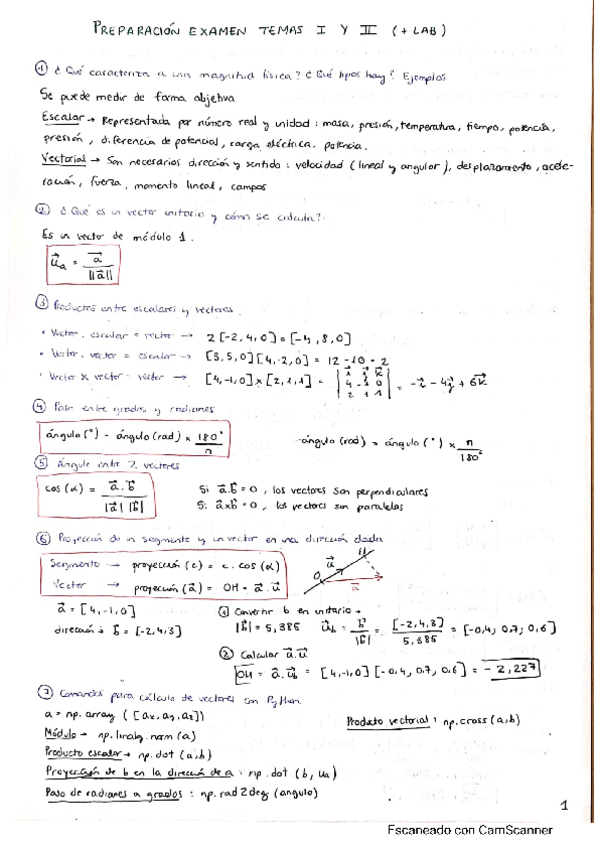 PREPARACIÓN EXAMEN TEMAS I Y II (+ LAB)
① ¿Qué caracteriza a una magnitud física? ¿Qué tipos hay? Ejemplos
Se puede medir de forma objetiva
Escalar → Representada por número real y unidad: masa, presión, temperatura, tiempo, potencia,
presión, diferencia de potencial, carga eléctrica, potencia.
Vectorial → Son necesarios dirección y sentido: velocidad (lineal y angular), desplazamiento, acele-
ración, fuerza, momento lineal, campos
② ¿Qué es un vector unitario y cómo se calcula?
Es un vector de módulo 1.
u⃗a = a⃗ / ||a⃗||
③ Productos entre escalares y vectores
• Vector . escalar = vector → 2[-2,4,0] = [-4,8,0]
• Vector . vector = escalar → [3,5,0][4,-2,0] = 12-10 = 2
• Vector x vector = vector → [4,-1,0]x[2,1,1] = |i⃗ j⃗ k⃗; 4 -1 0; 2 1 1| = -i⃗ - 4j⃗ + 6k⃗
④ Paso entre grados y radianes
ángulo(°) = ángulo(rad) x 180°/π
ángulo(rad) = ángulo(°) x π/180°
⑤ Ángulo entre 2 vectores
cos(α) = a⃗.b⃗ / |a⃗||b⃗|
Si a⃗.b⃗ = 0, los vectores son perpendiculares
Si a⃗xb⃗ = 0, los vectores son paralelos
⑥ Proyección de un segmento y un vector en una dirección dada
Segmento → proyección (c) = c. cos(α)
Vector → proyección (a⃗) = OH = a⃗.u⃗
O u⃗ H a⃗
a⃗ = [4,-1,0]
dirección: b⃗ = [-2,4,3]
① Convertir b en unitario →
|b⃗| = 5,385 u⃗b = b⃗/|b⃗| = [-2,4,3]/5,385 = [-0,4; 0,7; 0,6]
② Calcular a⃗.u⃗
OH = a⃗.u⃗b = [4,-1,0][-0,4, 0,7, 0,6] = -2,227
⑦ Comandos para cálculo de vectores con Python
a = np.array ([ax,ay,az])
Producto vectorial: np.cross(a,b)
Módulo → np.linalg.norm(a)
Producto escalar → np.dot(a,b)
Proyección de b en la dirección de a: np.dot(b,ua)
Paso de radianes a grados: np.rad2deg(angulo)
1
Escaneado con CamScanner